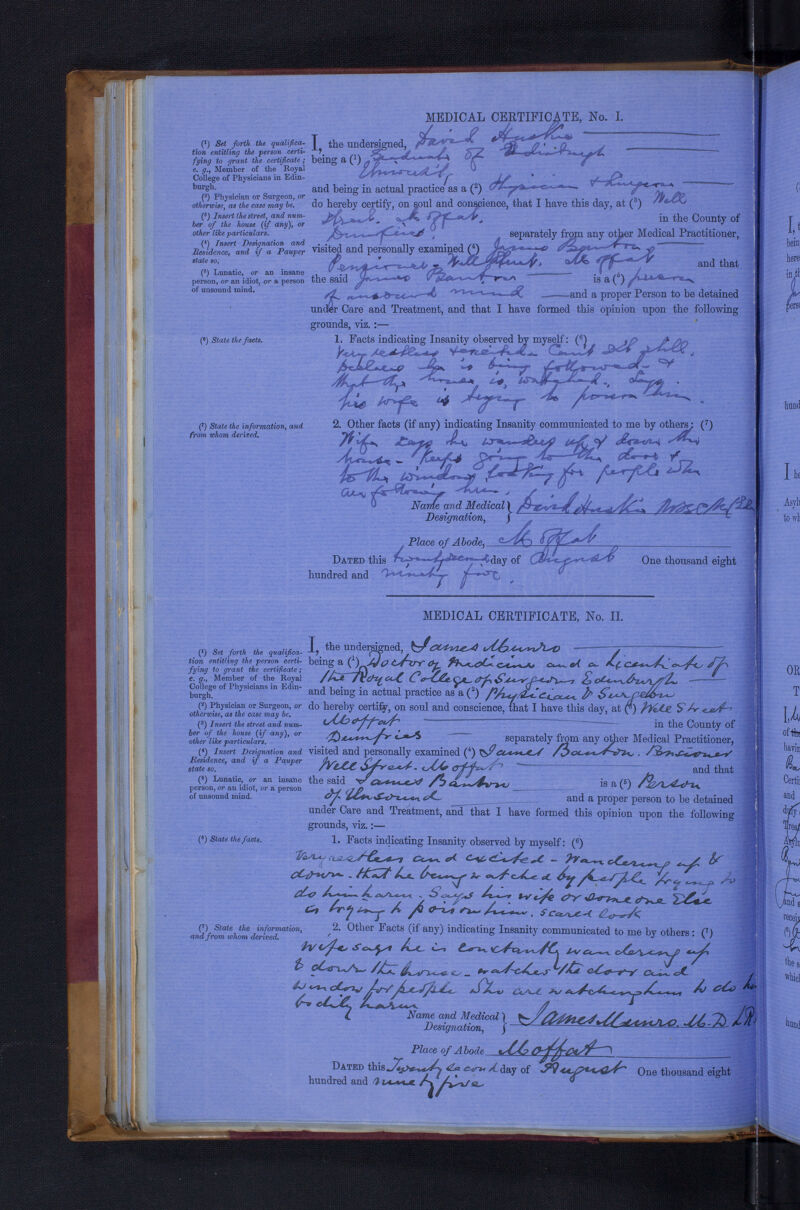 MEDICAL CERTIFICATE, No. I.
(¹) Set forth the qualifica-
tion entitling the person certi-
fying to grant the certificate;
e. g., Member of the Royal
College of Physicians in Edin-
burgh.
(²) Physician or Surgeon, or
otherwise, as the case may be.
(³) Insert the street, and num-
ber of the house (if any), or
other like particulars.
(⁴) Insert Designation and
Residence, and if a Pauper
state so.
(⁵) Lunatic, or an insane
person, or an idiot, or a person
of unsound mind.
I, the undersigned, David Huskie
being a (¹) Graduate of Edinburgh
University
and being in actual practice as a (²) Physician & Surgeon
do hereby certify, on soul and conscience, that I have this day, at (³) Well
Street. Moffat. in the County of
Dumfries separately from any other Medical Practitioner,
visited and personally examined (⁴) James Banton
Pensioner - Well Street. Moffat and that
the said James Banton is a (⁵) person
of unsound mind and a proper Person to be detained
under Care and Treatment, and that I have formed this opinion upon the following
grounds, viz. :—
(⁶) State the facts.
1. Facts indicating Insanity observed by myself: (⁶)
Very restless & excited. Can't sit still.
Declares he is being followed - &
that the house is watched. Says
his wife is trying to poison him.
(⁷) State the information, and
from whom derived.
2. Other facts (if any) indicating Insanity communicated to me by others; (⁷)
Wife says he wanders up & down the
house - Keeps going to the door &
to the window looking for people who
are following him.
Name and Medical
Designation, David Huskie
Place of Abode, Moffat
DATED this twenty second day of August One thousand eight
hundred and ninety five.
MEDICAL CERTIFICATE, No. II.
(¹) Set forth the qualifica-
tion entitling the person certi-
fying to grant the certificate;
e. g., Member of the Royal
College of Physicians in Edin-
burgh.
(²) Physician or Surgeon, or
otherwise, as the case may be.
(³) Insert the street and num-
ber of the house (if any), or
other like particulars.
(⁴) Insert Designation and
Residence, and if a Pauper
state so.
(⁵) Lunatic, or an insane
person, or an idiot, or a person
of unsound mind.
I, the undersigned, James Munro
being a (¹) Doctor of Medicine and a Licentiate of
the Royal College of Surgeons Edinburgh
and being in actual practice as a (²) Physician & Surgeon
do hereby certify, on soul and conscience, that I have this day, at (³) Well Street
Moffat in the County of
Dumfries separately from any other Medical Practitioner,
visited and personally examined (⁴) James Banton. Pensioner
Well Street. Moffat and that
the said James Banton is a (⁵) Person
of Unsound and a proper person to be detained
under Care and Treatment, and that I have formed this opinion upon the following
grounds, viz. :—
(⁶) State the facts.
1. Facts indicating Insanity observed by myself: (⁶)
Very restless and excited - Wandering up &
down - that he being watched by people trying to
do him harm. Says his wife or someone Else
is trying to poison him. Scared look
(⁷) State the information,
and from whom derived.
2. Other Facts (if any) indicating Insanity communicated to me by others: (⁷)
Wife says he is constantly wandering up
& down the house - watches the door and
window for people who are watching him to do
bodily harm
Name and Medical
Designation, James Munro M.D.
Place of Abode Moffat
DATED this Twenty Second day of August One thousand eight
hundred and ninety five